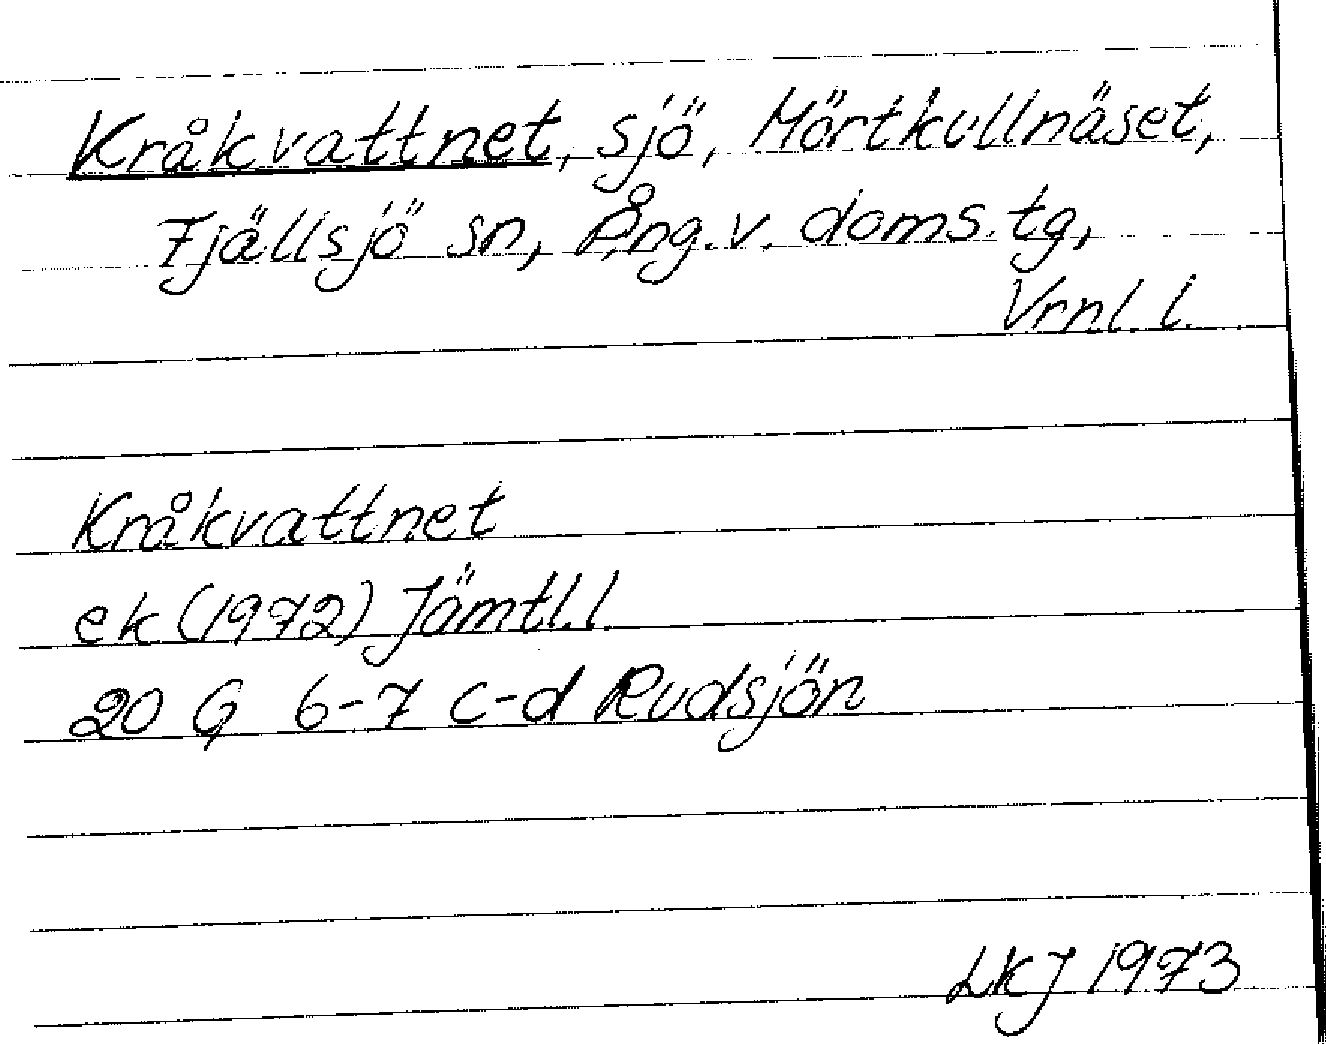 Kråkvattnet, sjö, Mörtkullnäset,
Fjällsjö sn, Ång.v. doms. tg,
Vrnl. l.
Kråkvattnet
ek (1972) Jämtl.l.
20 G 6-7 c-d Rudsjön
LKJ 1973